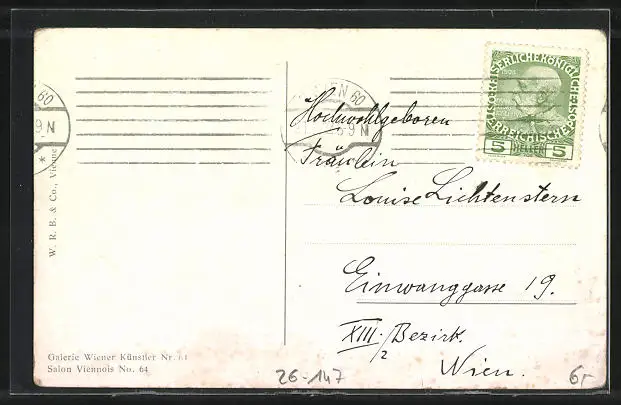 WIEN 60
9 N
KAISERLICHE KÖNIGLICHE
ÖSTERREICHISCHE POST
1908
5 HELLER 5
Hochwohlgeboren
Fräulein
Louise Lichtenstern
Einwanggasse 19.
XIII/2 Bezirk.
Wien.
W. R. B. & Co., Vienne
Galerie Wiener Künstler Nr. 64
Salon Viennois No. 64
26-147
6,-